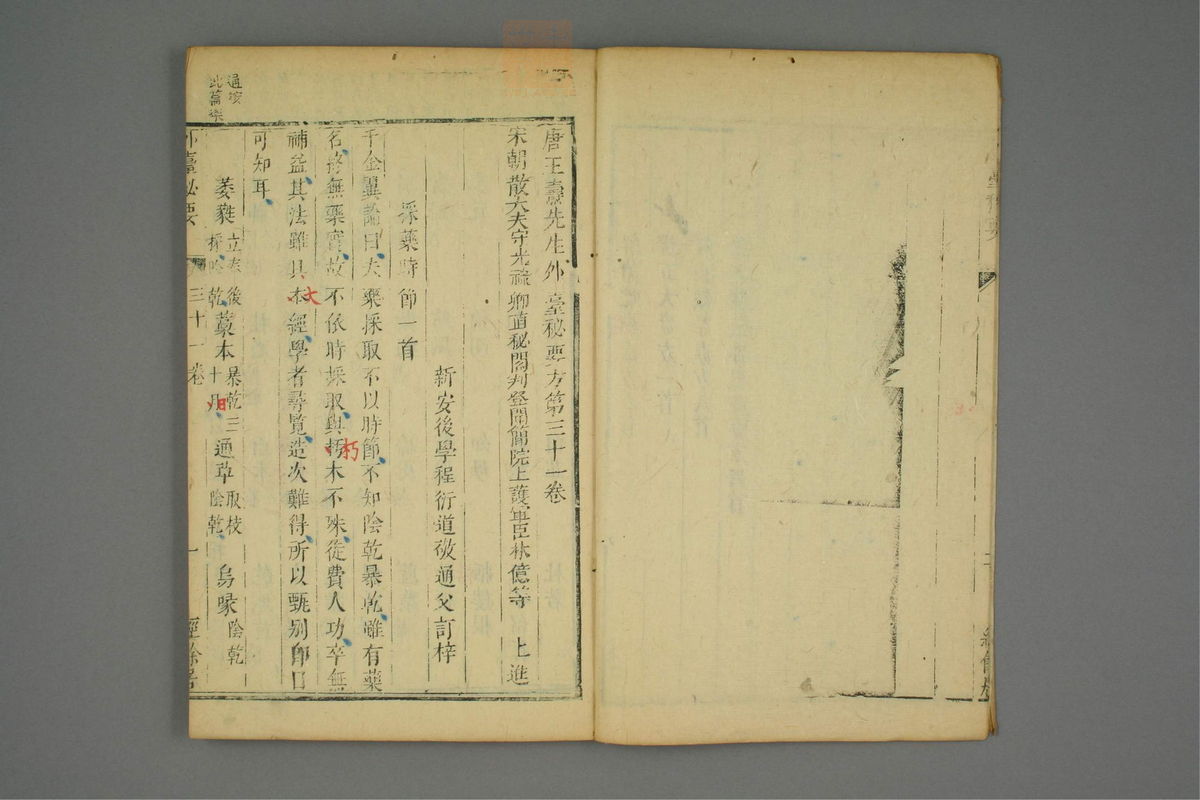 唐王燾先生外臺秘要方第三十一卷
宋朝散大夫守光祿卿直秘閣判登聞簡院上護軍臣林億等 上進
新安後學程衍道敬通父訂梓
採藥時節一首
千金翼論曰夫藥採取不以時節不知陰乾暴乾雖有藥
名終無藥實故不依時採取與朽木不殊徒費人功卒無
朽
補益其法雖具本經學者尋覽造次難得所以甄別即日
大
可知耳
萎蕤 立春後採陰乾 藁本 暴乾三十日 通草 取枝陰乾 烏喙 陰乾
月
外臺秘要 三十一卷 一 經餘居
此篇